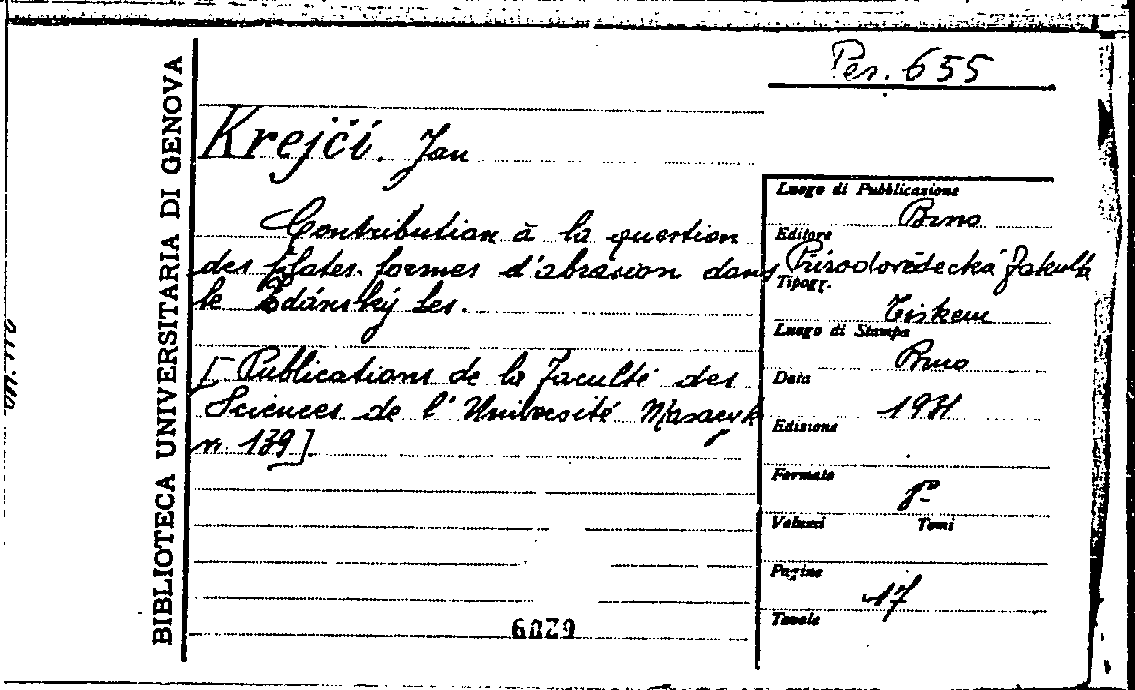 Per. 655
BIBLIOTECA UNIVERSITARIA DI GENOVA
Krejčí. Jan
Contribution à la question
des plates-formes d'abrasion dans
le Ždánský Les.
[Publications de la Faculté des
Sciences de l'Université Masaryk
n. 139]
Luogo di Pubblicazione
Brno
Editore
Přírodovědecká fakulta
Tipogr.
Tiskem
Luogo di Stampa
Brno
Data
1931
Edizione
Formato
8°
Volumi Tomi
Pagine
17
Tavole